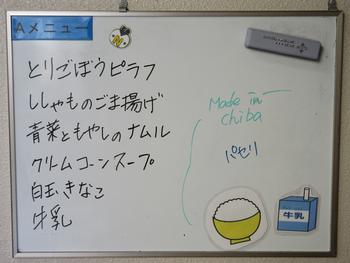 Aメニュー
とりごぼうピラフ
ししゃものごま揚げ
青菜ともやしのナムル
クリームコーンスープ
白玉きなこ
牛乳
Made in
chiba
パセリ
牛乳